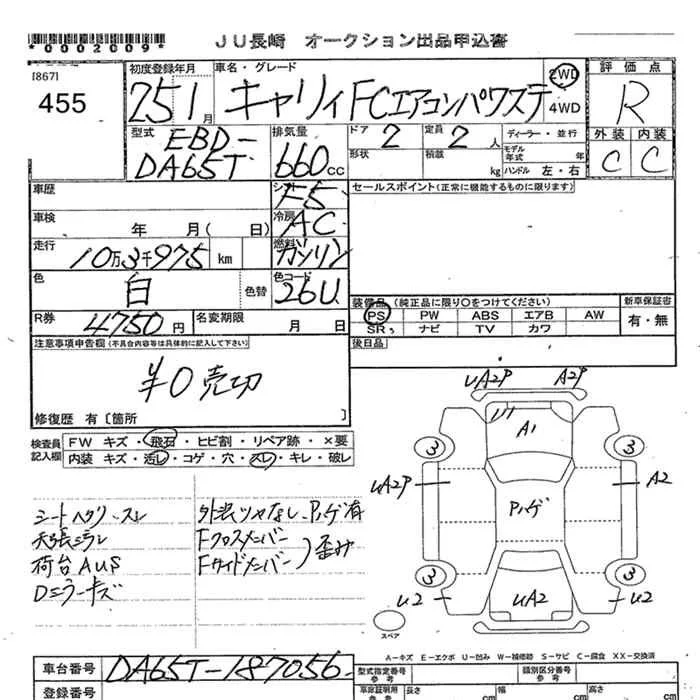 *0002009*
JU長崎 オークション出品申込書
[867]
455
初度登録年月
25 1月
車名・グレード
キャリィ FCエアコンパワステ
2WD
4WD
評価点
R
外装 内装
C C
型式
EBD-
DA65T
排気量
660cc
ドア 2
定員 2人
形状
積載 kg
ディーラー・並行
モデル年式 年
ハンドル 左・右
車歴
シフト
F5
セールスポイント(正常に機能するものに限ります)
車検 年 月( 日)
冷房
AC
走行
10万3千975 km
燃料
ガソリン
色
白
色替
色コード
26U
装備品(純正品に限り○をつけてください)
新車保証書
PS PW ABS エアB AW
有・無
SR ナビ TV カワ
R券
4750円
名変期限 月 日
後日品
注意事項申告欄(不具合内容等は具体的に記入して下さい)
¥0売切
修復歴 有〔箇所 〕
検査員
記入欄
FW キズ・飛石・ヒビ割・リペア跡・×要
内装 キズ・汚レ・コゲ・穴・スレ・キレ・破レ
シートヘタリ・スレ
天張ミラレ
荷台AUS
Dミラーキズ
外装ツヤなし・Pハゲ有
Fクロスメンバー
Fサイドメンバー
歪み
UA2P A2P
U1
A1
3 3
UA2P
A2
Pハゲ
3 3
U2 U2
UA2
スペア
A-キズ E-エクボ U-凹み W-補修跡 S-サビ C-腐食 XX-交換済
車台番号
DA65T-187056
型式指定番号
参考
類別区分番号
参考
登録番号
車庫証明用
参考
長さ cm
幅 cm
高さ cm